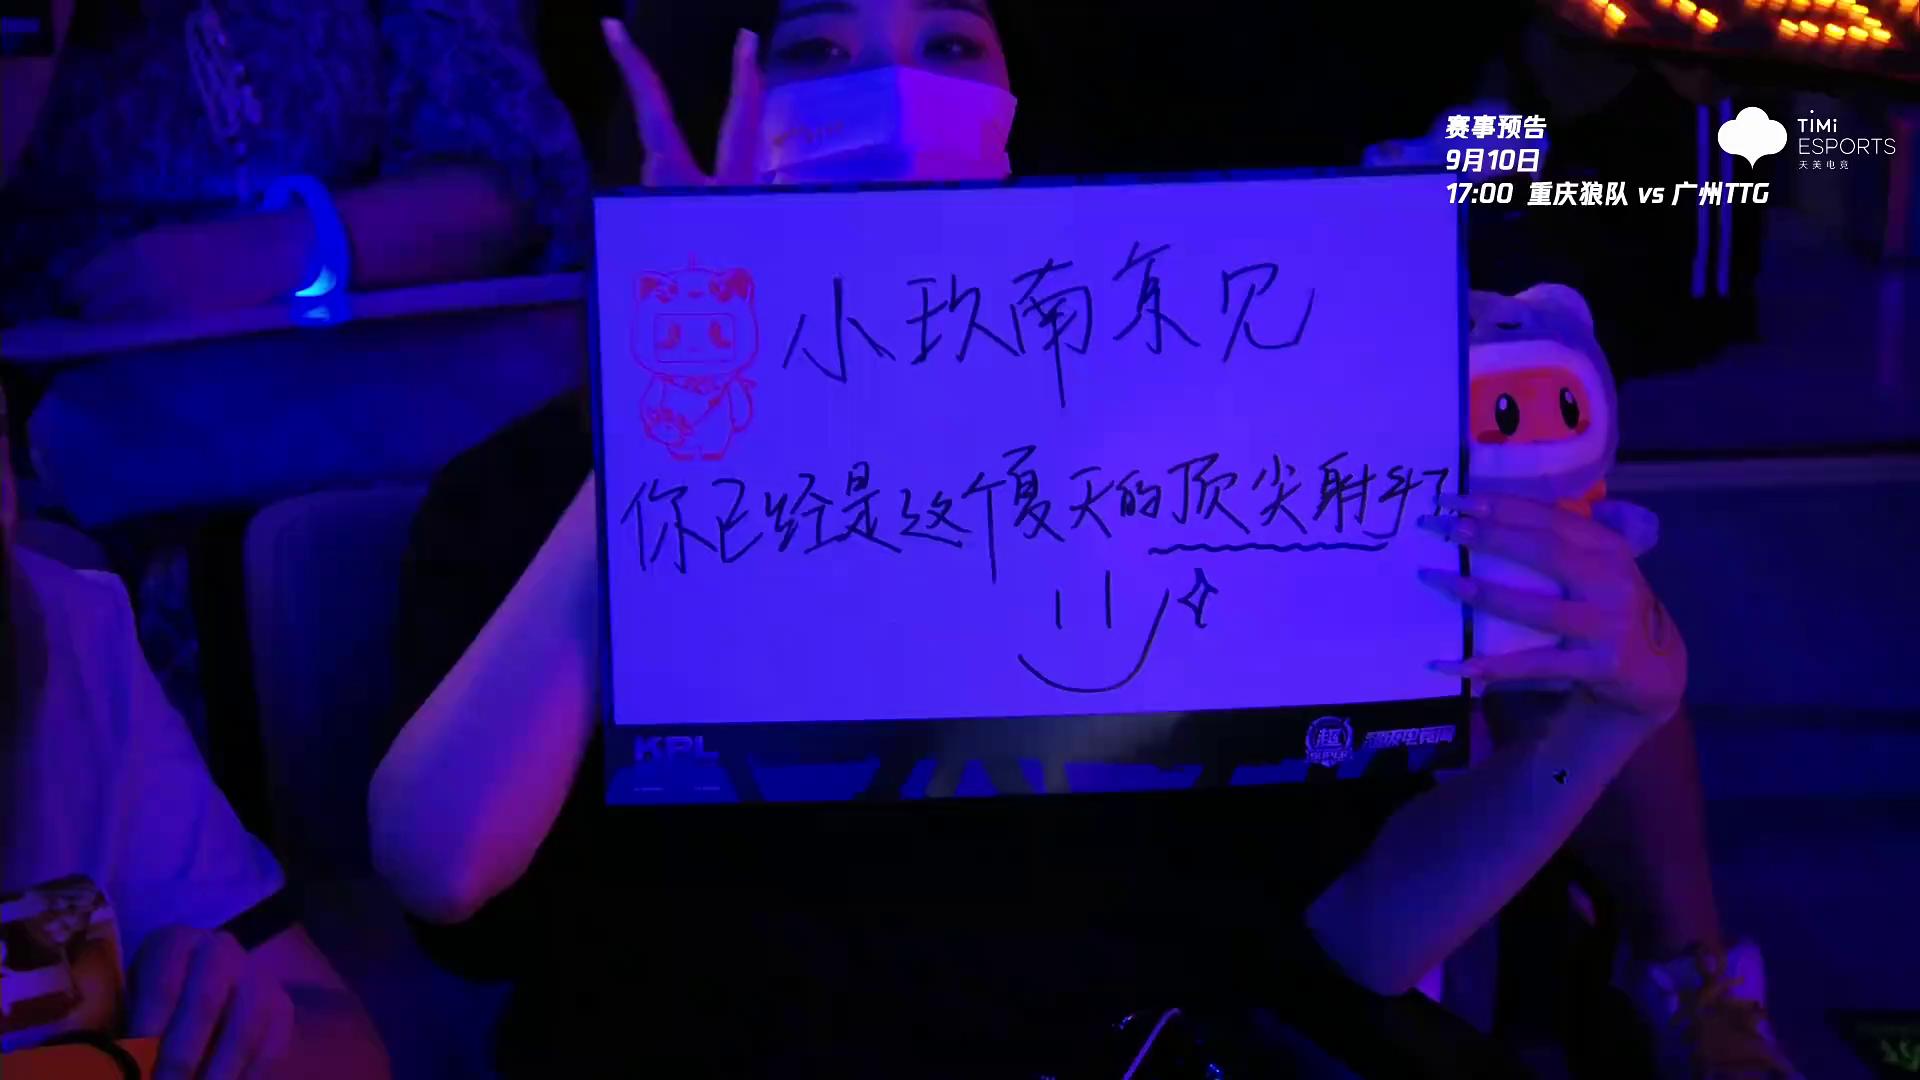 赛事预告
9月10日
17:00 重庆狼队 vs 广州TTG
TiMi
ESPORTS
天美电竞
小玖南京见
你已经是这个夏天的顶尖射手了
KPL
超
SUPER
超级电竞周